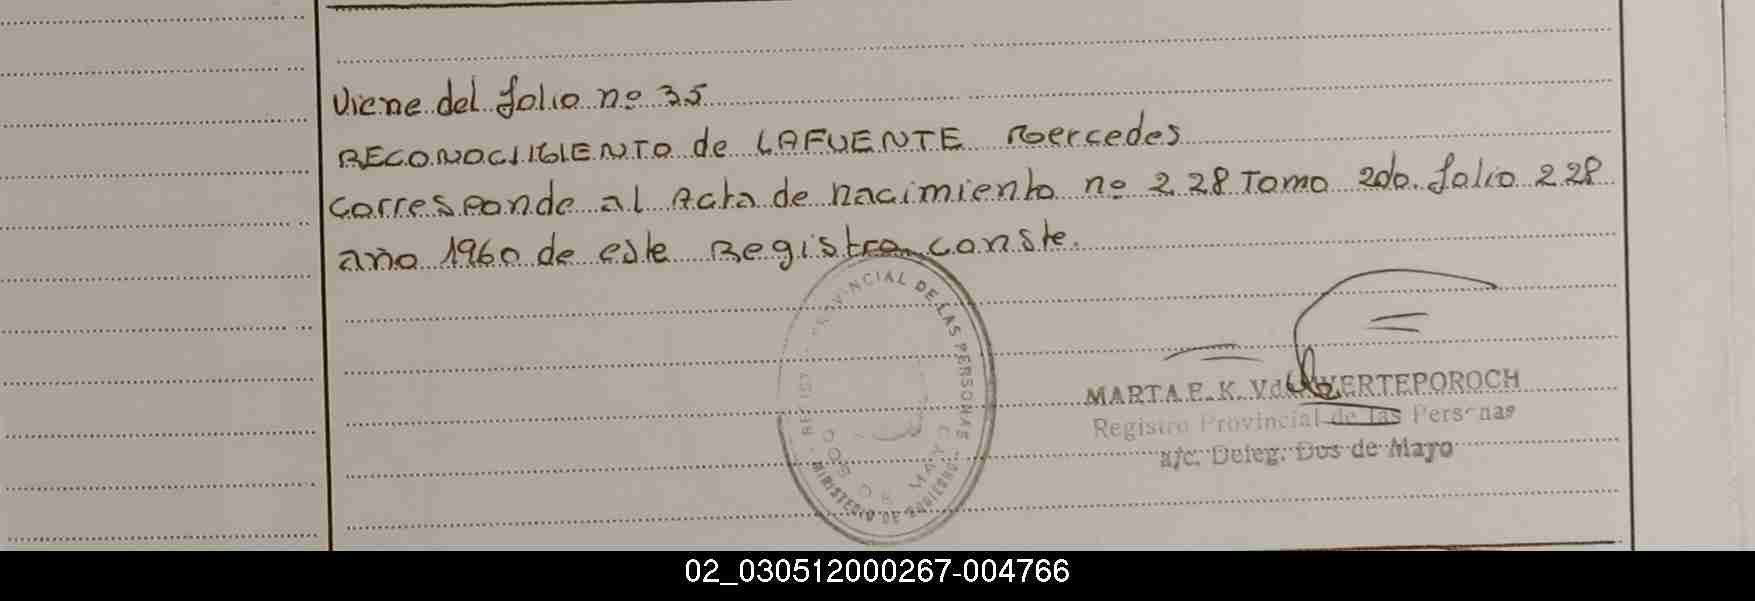 Viene del folio nº 35
RECONOCIMIENTO de LAFUENTE Mercedes
corresponde al Acta de nacimiento nº 228 Tomo 2do. folio 228
año 1960 de este Registro conste.
PROVINCIAL DE LAS PERSONAS
MINISTERIO DE GOBIERNO
DOS DE MAYO
MARTA E. K. Vda. WERTEPOROCH
Registro Provincial de las Personas
a/c. Deleg. Dos de Mayo
02_030512000267-004766